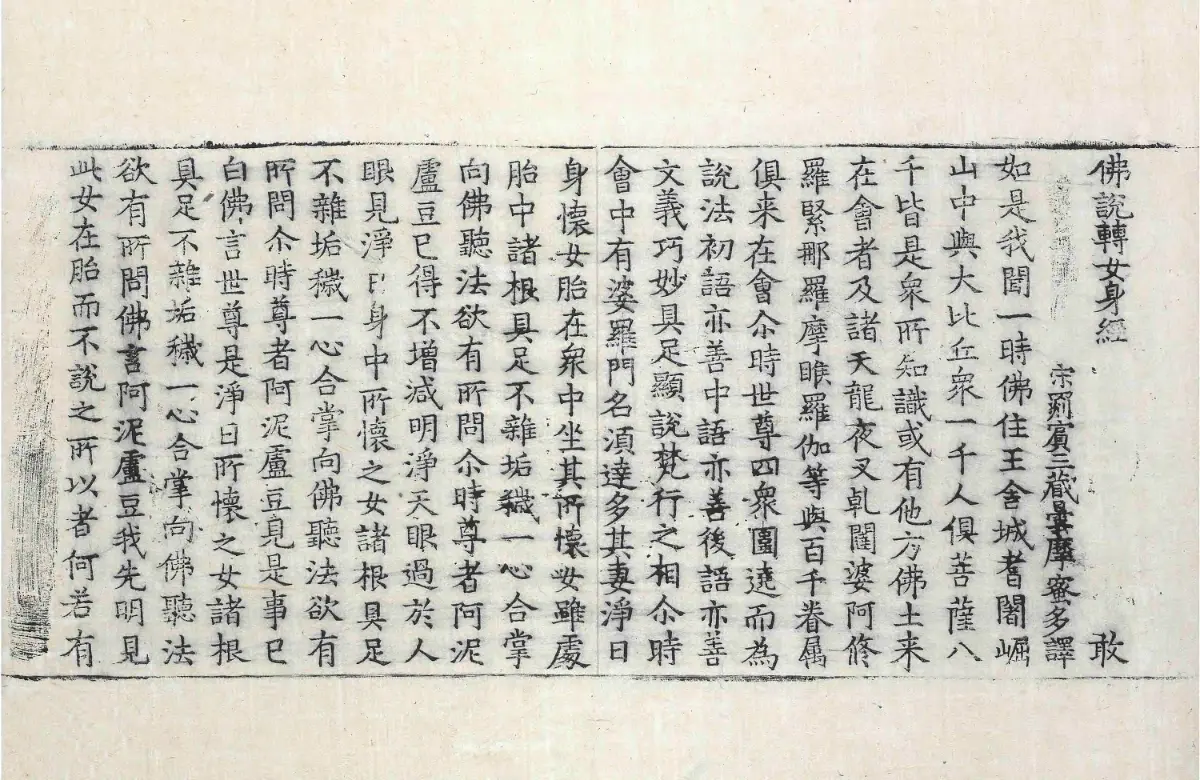 佛說轉女身經 敢
宋罽賓三藏曇摩蜜多譯
如是我聞一時佛住王舍城耆闍崛
山中與大比丘衆一千人俱菩薩八
千皆是衆所知識或有他方佛土来
在會者及諸天龍夜叉乹闥婆阿脩
羅緊那羅摩睺羅伽等與百千眷属
俱来在會尒時世尊四衆圍遶而為
說法初語亦善中語亦善後語亦善
文義巧妙具足顯說梵行之相尒時
會中有婆羅門名湏達多其妻淨日
身懷女胎在衆中坐其所懷女雖處
胎中諸根具足不雜垢穢一心合掌
向佛聽法欲有所問尒時尊者阿泥
盧豆已得不增減明淨天眼過於人
眼見淨日身中所懷之女諸根具足
不雜垢穢一心合掌向佛聽法欲有
所問尒時尊者阿泥盧豆見是事已
白佛言世尊是淨日所懷之女諸根
具足不雜垢穢一心合掌向佛聽法
欲有所問佛言阿泥盧豆我先明見
此女在胎而不說之所以者何若有